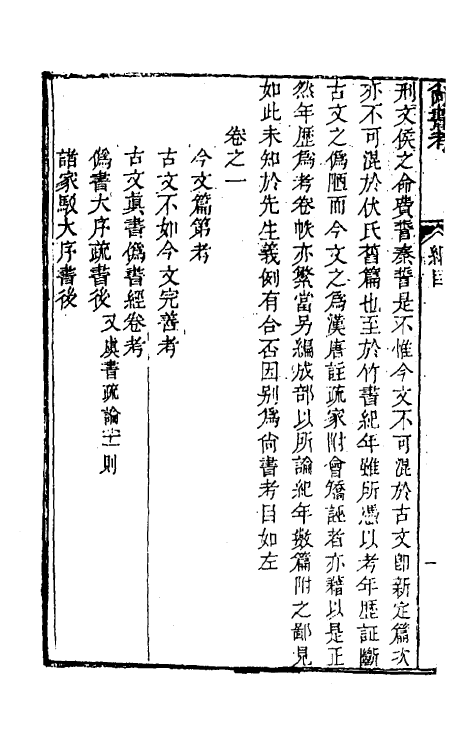 尚書考
總目
一
刑文侯之命費誓秦誓是不惟今文不可混於古文卽新定篇次
亦不可混於伏氏舊篇也至於竹書紀年雖所憑以考年歷証斷
古文之僞陋而今文之爲漢唐註疏家附會矯誣者亦藉以是正
然年歷爲考卷帙亦繁當另編成部以所論紀年數篇附之鄙見
如此未知於先生義例有合否因別爲尙書考目如左
卷之一
今文篇第考
古文不如今文完善考
古文眞書僞書經卷考
僞書大序疏書後 又虞書疏論十一則
諸家駁大序書後